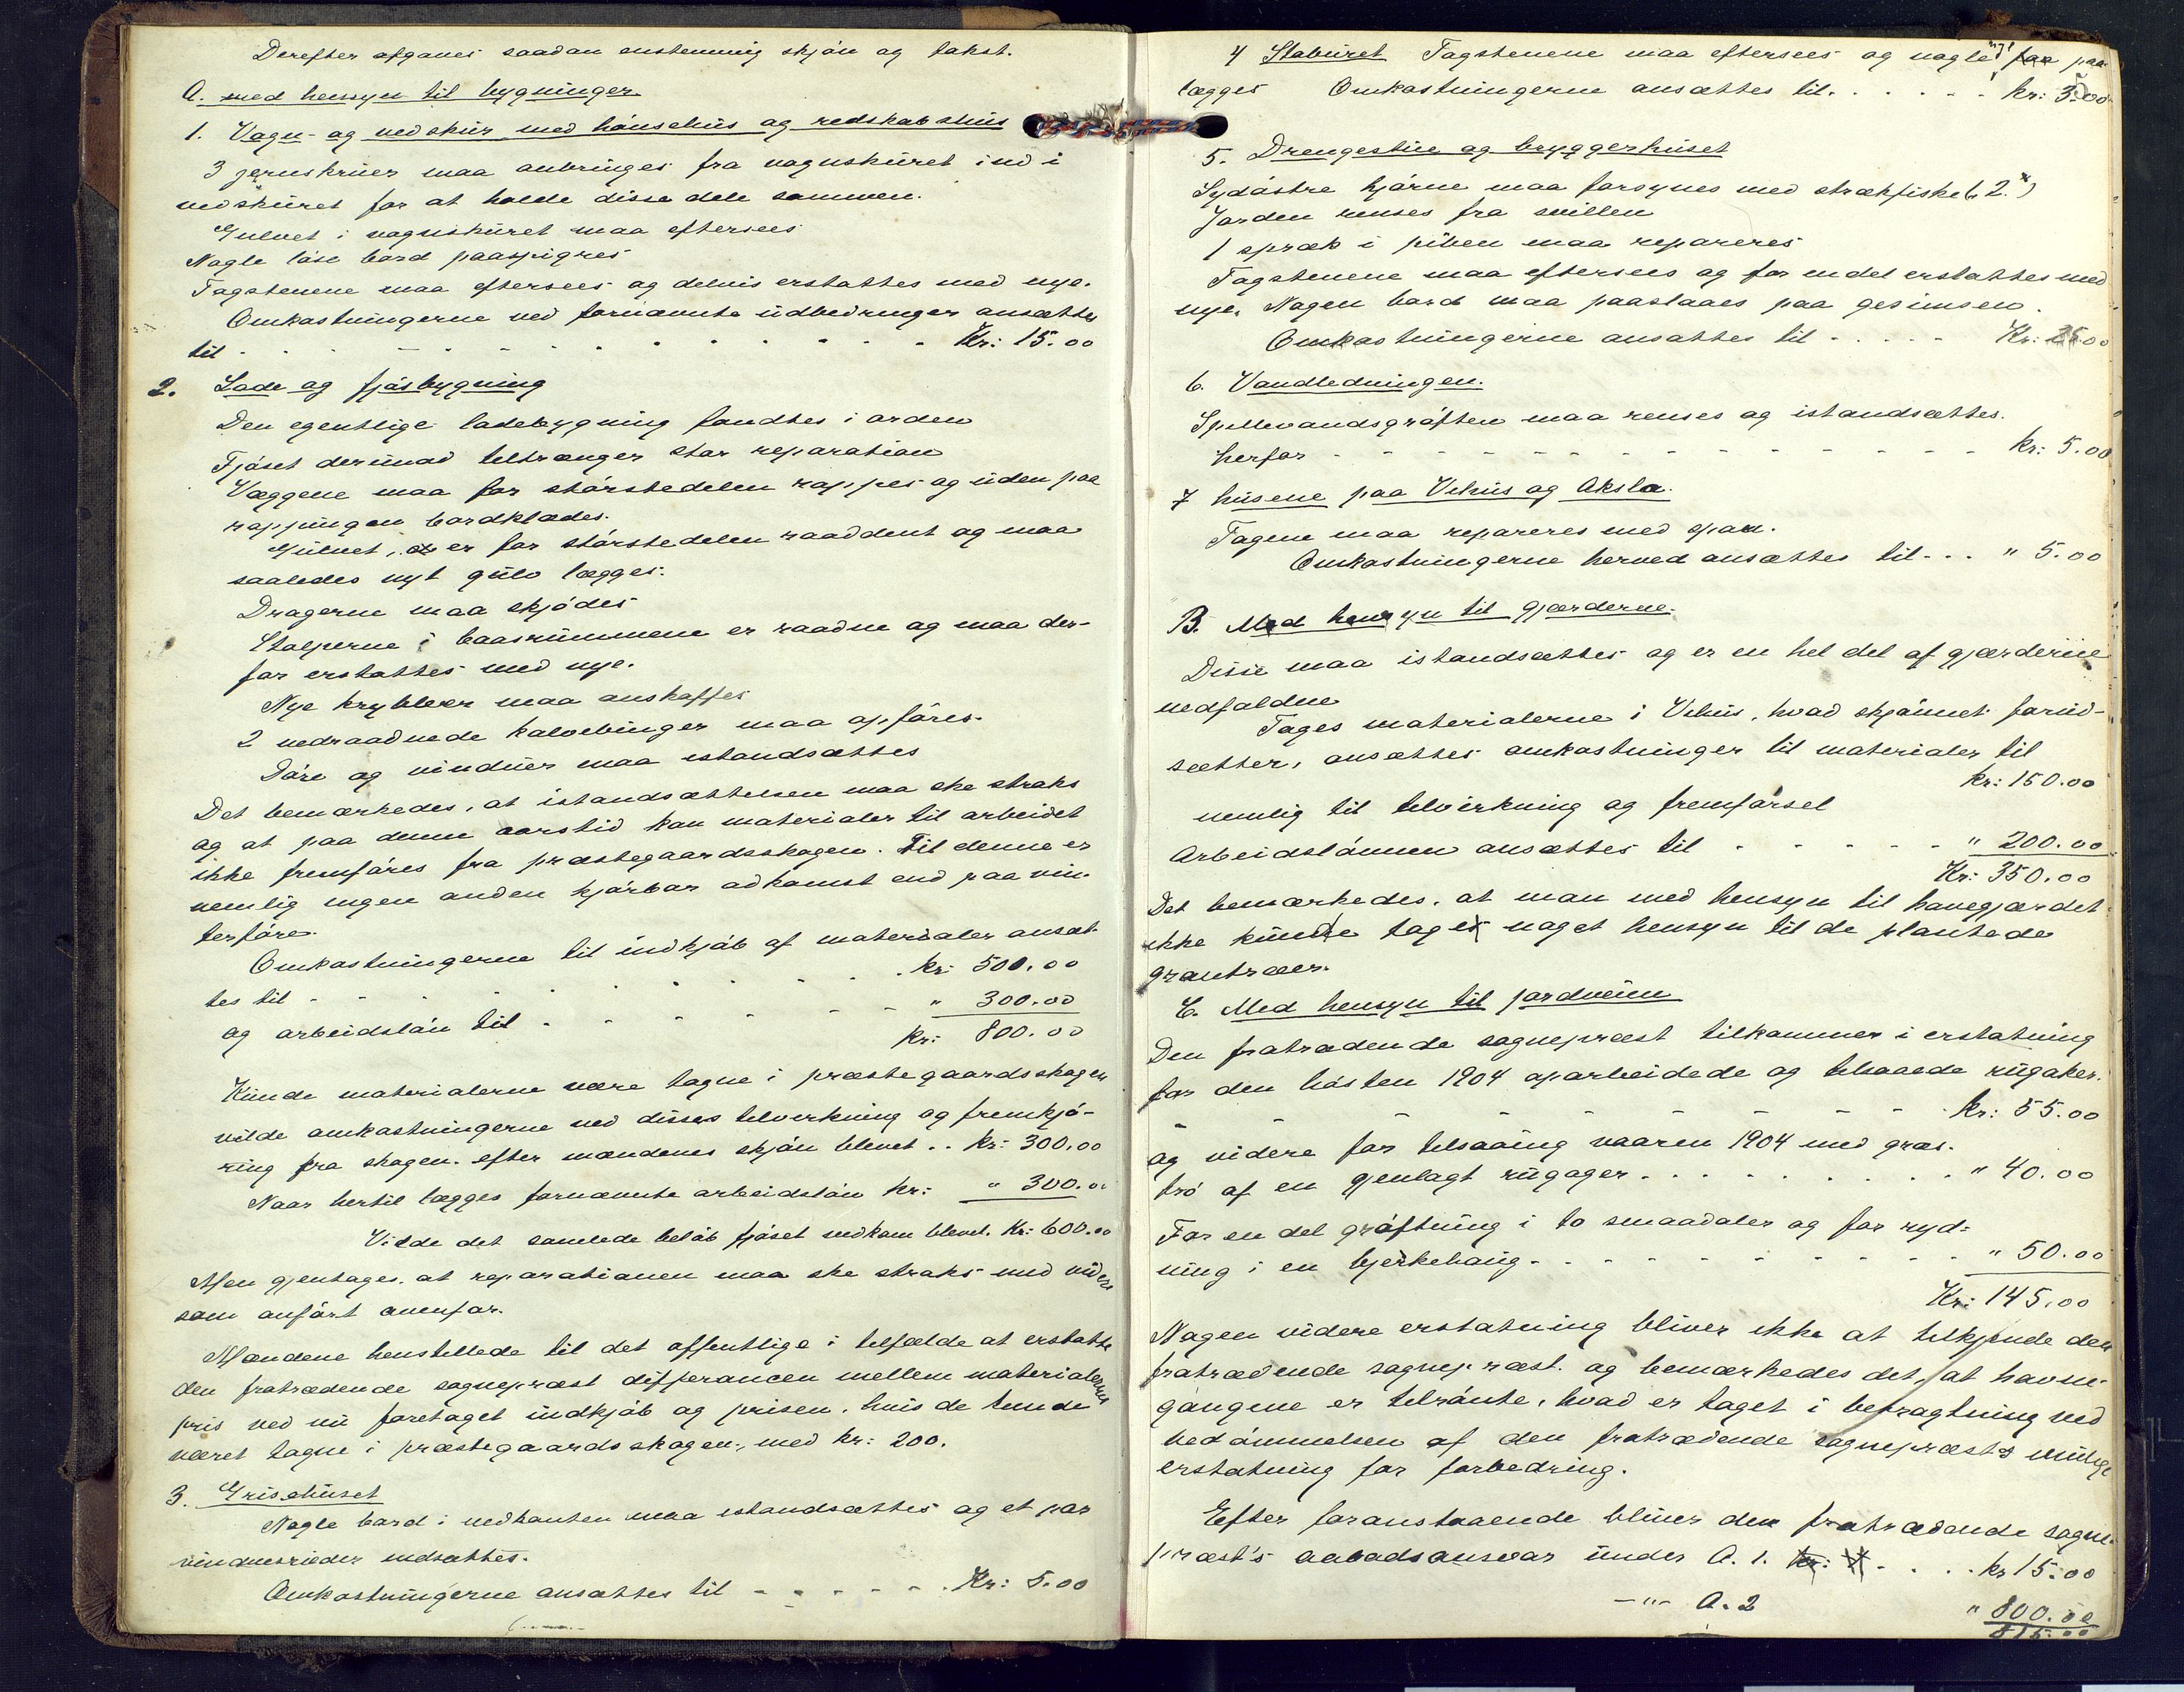 Derefter afgaves saadan enstemmig skjön og takst.
A. med hensyn til bygninger
1. Vogn- og vedskur med hönsehus og redskabshus
3 jernskruer maa anbringes fra vognskuret ind i
vedskuret for at holde disse dele sammen.
Gulvet i vognskuret maa eftersees
Nogle löse bord paaspigres
Tagstenene maa eftersees og delvis erstattes med nye.
Omkostningerne ved fornævnte udbedringer ansættes
til - - - - - - - - - - - - Kr: 15.00
2. Lade og fjösbygning
Den egentlige ladebygning fandtes i orden
Fjöset derimod tiltrænger stor reparation
Væggene maa for störstedelen rappes og uden paa
rappingen bordklædes.
Gulvet, er for störstedelen raaddent og maa
saaledes nyt gulv lægges.
Dragerne maa skjödes
Stolperne i baasrummene er raadne og maa der-
for erstattes med nye.
Nye krybber maa anskaffes
2 nedraadnede kalvebinger maa opföres.
Döre og vinduer maa istandsættes
Det bemærkedes, at istandsættelsen maa ske straks
og at paa denne aarstid kan materialer til arbeidet
ikke fremföres fra præstegaardsskogen. Til denne er
nemlig ingen anden kjörbar adkomst end paa vin-
terföre.
Omkostningerne til indkjöb af materialer ansæt-
tes til - - - - - - - - Kr: 500.00
og arbeidslön til - - - - - - " 300.00
Kr: 800.00
Kunde materialerne være tagne i præstegaardsskogen
vilde omkostningerne ved disses tilvirkning og fremkjö-
ring fra skogen. efter mændenes skjön blevet . . Kr: 300.00
Naar hertil lægges fornævnte arbeidslön kr: " 300.00
Vilde det samlede beløb fjöset vedkom blevet. Kr: 600.00
Men gjentages. at reparationen maa ske straks med videre
som anfört ovenfor.
Mændene henstillede til det offentlige i tilfælde at erstatte
den fratrædende sogneprest differancen mellem materialernes
pris ved nu foretaget indkjöb og prisen, hvis de kunde
været tagne i præstegaardsskogen, med kr: 200.
3. Grisehuset
Nogle bord i nedkanten maa istandsættes og et par
vinduesruder indsættes.
Omkostningerne ansættes til - - - - - . Kr: 5.00
4 Staburet Tagstenene maa eftersees og nogle paa
lægges Omkostningerne ansættes til. . . . . . kr: 5.00
5. Drengestue og bryggerhuset
Sydöstre hjörne maa forsynes med strækfiske (: 2 :)
Jorden renses fra svillen
1 spræk i piben maa repareres
Tagstenene maa eftersees og for endel erstattes med
nye. Nogen bord maa paaslaaes paa gesimsen.
Omkostningerne ansættes til . . . . . Kr: 25.00
6. Vandledningen.
Spillevandsgröften maa renses og istandsættes.
herfor - - - - - - - - - - - - - kr: 5.00
7 husene paa Vehus og Aksla.
Tagene maa repareres med spon.
Omkostningerne herved ansættes til . . . " 5.00
B. Med hensyn til gjærderne.
Disse maa istandsættes og er en hel del af gjærderne
nedfaldne
Tages materialerne i Vehus, hvad skjönnet forud-
sætter, ansættes omkostninger til materialer til
kr: 150.00
nemlig til tilvirkning og fremförsel
Arbeidslönnen ansættes til - - - - - " 200.00
Kr: 350.00
Det bemærkedes. at man med hensyn til havegjærdet
ikke kunde tage noget hensyn til de plantede
grantræer.
C. Med hensyn til jordveien
Den fratrædende sogneprest tilkommer i erstatning
for den hösten 1904 oparbeidede og tilsaaede rugaker.
- - - - - - - - Kr: 55.00
og videre for tilsaaing vaaren 1904 med græs-
frö af en gjenlagt rugager . . . . . . . . . " 40.00
For en del gröftning i to smaadaler og for ryd-
ning i en bjerkehaug - - - - - - - - - " 50.00
Kr: 145.00
Nogen videre erstatning bliver ikke at tilkjende den
fratrædende sognepræst. og bemærkedes det, at havne-
gangene er tilrönte, hvad er taget i betragtning ved
bedömmelsen af den fratrædende sognepræsts mulige
erstatning for forbedring.
Efter foranstaaende bliver den fratrædende sogne-
præst's aabodsansvar under A. 1. . . . kr 15.00
-"- A. 2 " 800.00
815.00